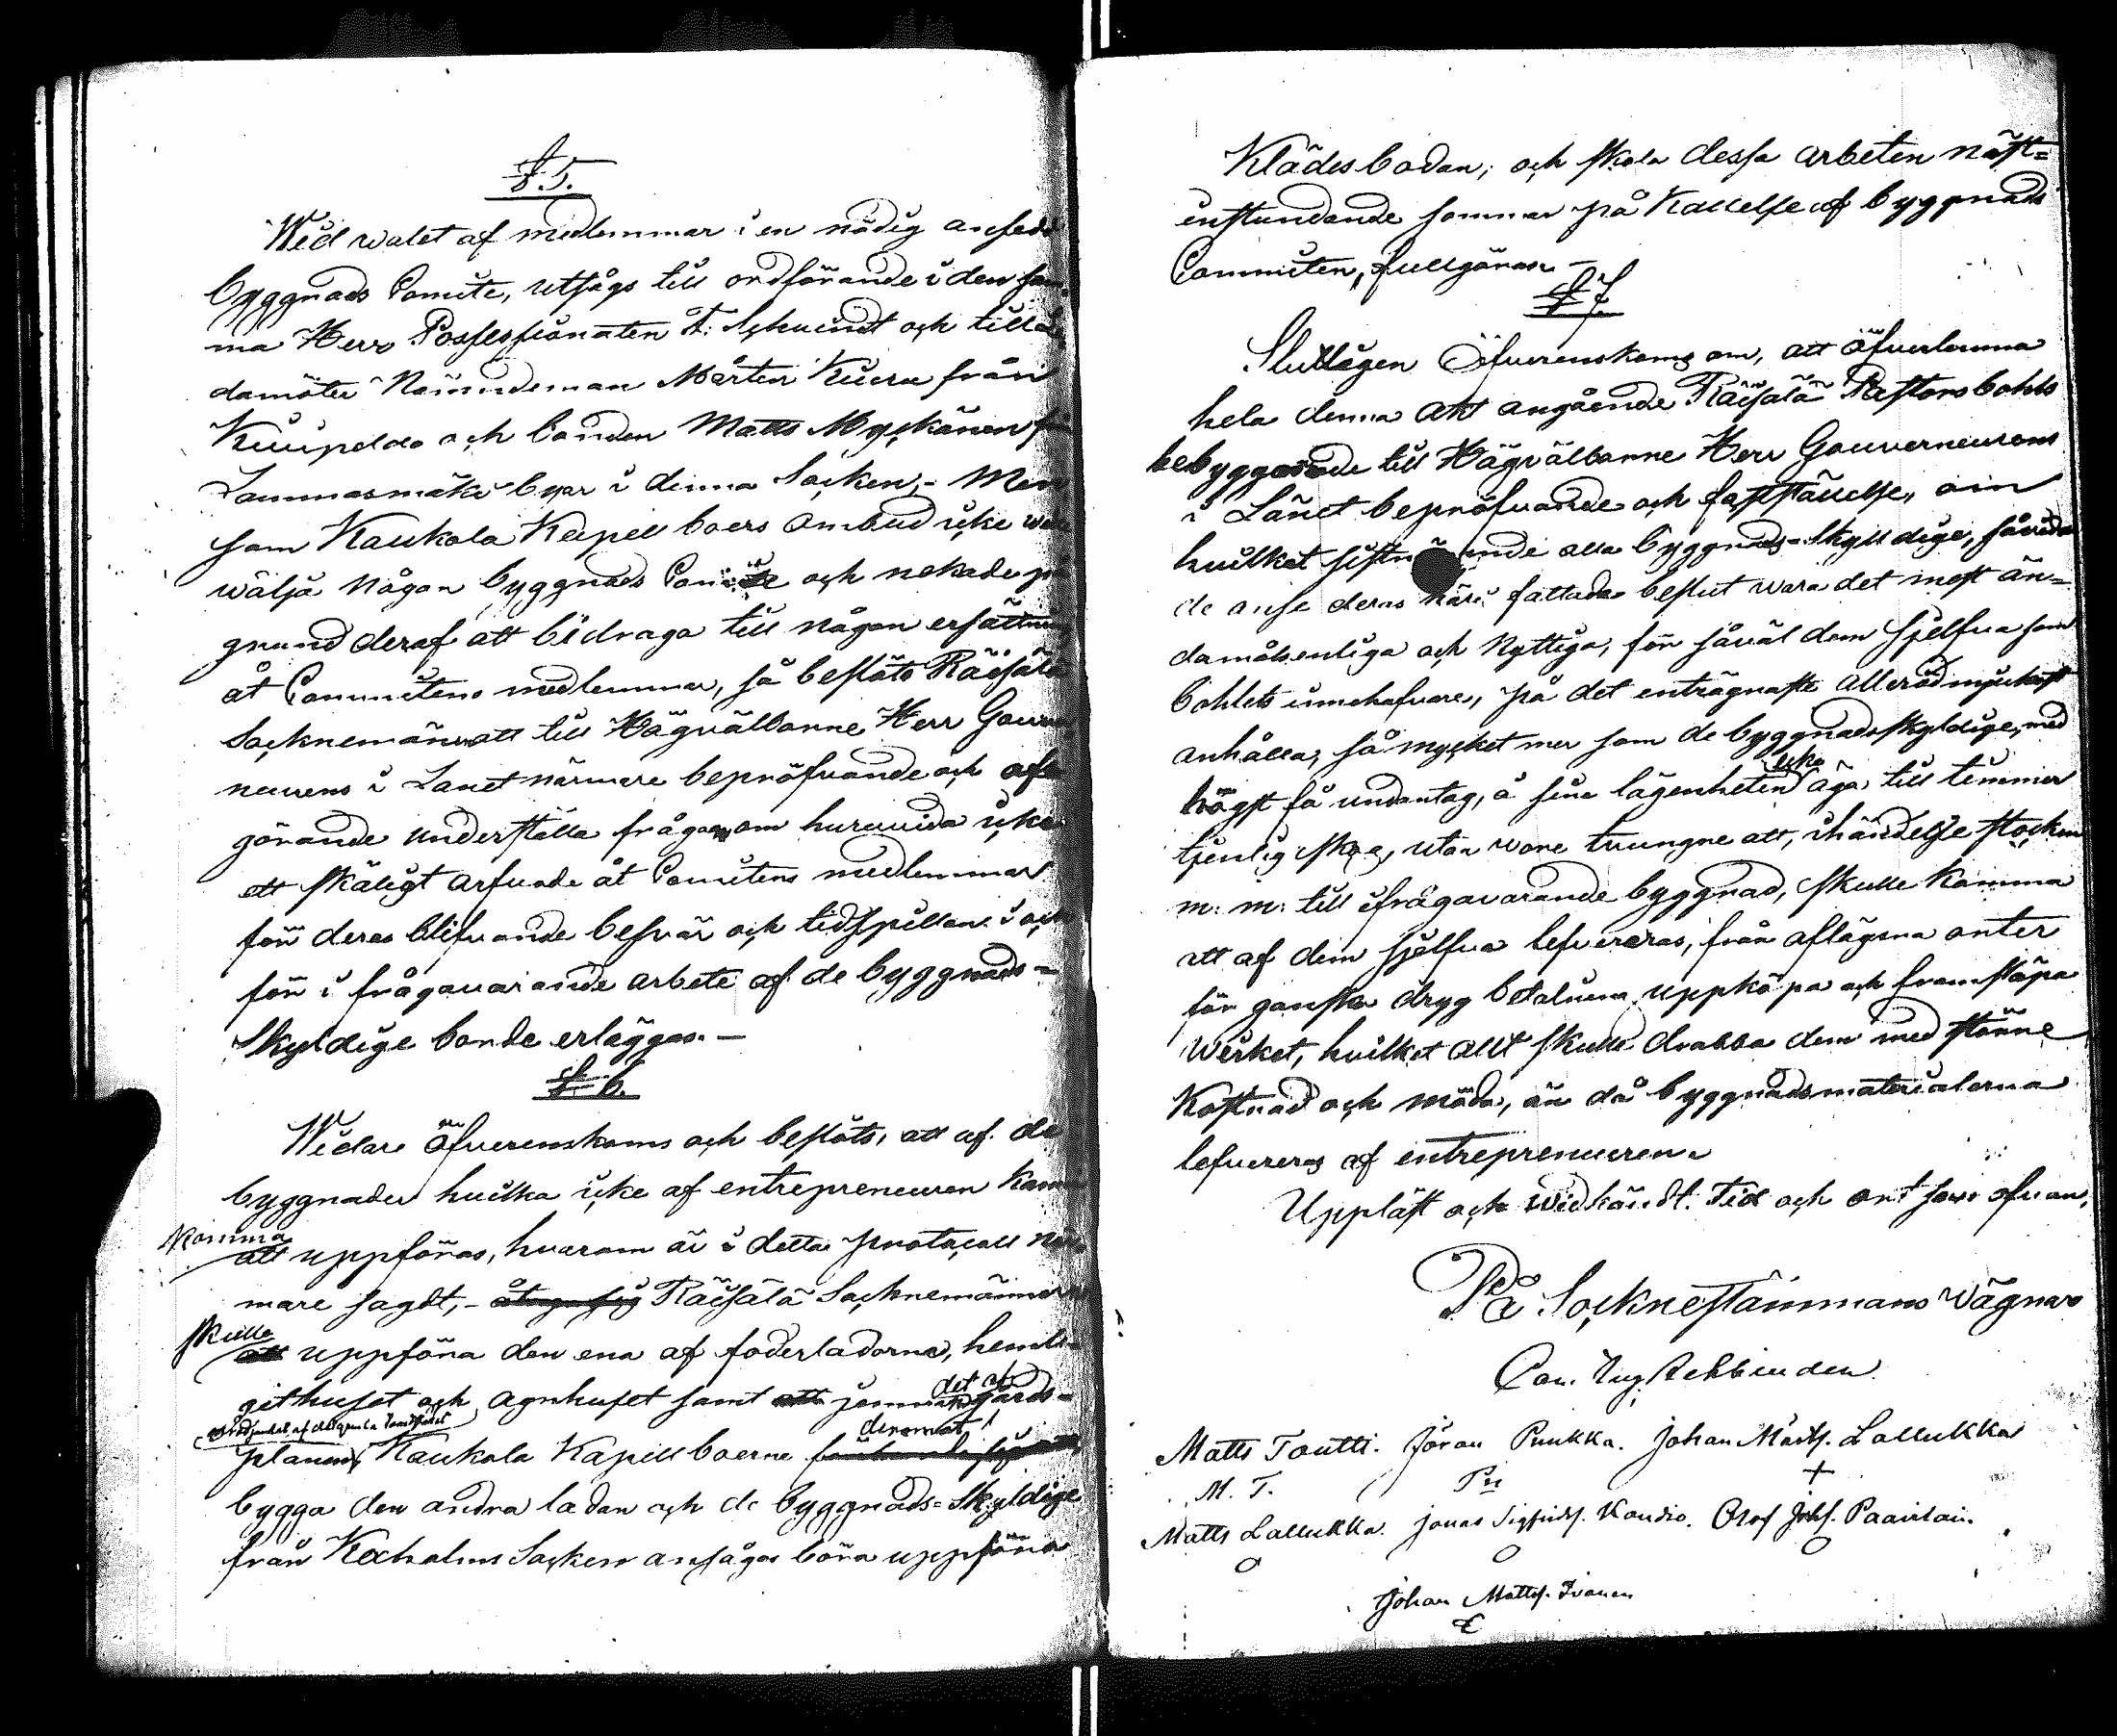 § 5.
Wid walet af medlemmar i en nödig ansedd
byggnads Comite, utsågs till ordförande i den sam-
ma Herr Possessionaten A: Schwindt och till
damöter Nämndeman Mårten Kiiera från
Kuupelda och bonden Matts Myskänen
Lammasmäki byar i denna Socken,- Men
som Kaukola Kapell boers ombud icke
wälja någon byggnads Comite och nekade på
grund deraf att bidraga till någon ersättning
åt Committens medlemmar, så beslöto Räisälä
Socknemän att till Högvälborne Herr Gouver
neurens i Länet närmare bepröfvande och af
görande underställa frågan om huruvida icke
ett skäligt arfvode åt Comitens medlemmar
för deras blifvande besvär och tidspillan i och
för i frågavarande arbete af de byggnads-
skyldige borde erläggas. —
§ 6.
Widare öfverenskoms och beslöts, att af de
byggnader hvilka icke af entrepreneuren komma
komma
att uppföras, hvarom är i detta protocoll när
mare sagdt,- åtaga sig Räisälä Socknemännerne
skulle
att uppföra den ena af foderladorna, hemli-
githuset och agnhuset samt att jemna det af gårds-
planen, Kaukola Kapell boerne deremot
bygga den andra ladan och de byggnads-Skyldige
från Kexholms Socken ansågos böra uppföra
Klädesbodan; och skola dessa arbeten näst-
instundande sommar på Kallelse af byggnads
Committen, fullgöras. —
§ 7.
Slutligen Öfverenskoms om, att öfverlemna
hela denna akt angående Räisälä Pastorsbohls
bebyggande till Högvälborne Herr Gouverneurens
i Länet bepröfvande och fastställelse, om
hvilket sistnämnde alla byggnads-skyldige, såvida
de anse deras häri fattade beslut wara det mest än-
damålsenliga och nyttiga, för såväl dem sjelfva som
bohlets innehafvare, på det enträgnaste allerödmjukast
anhålla, så mycket mer som de byggnadsskyldige, med
högst få undantag, å sina lägenheter icke äga till timmer
tjenlig skog, utan vore tvungne att, ihändelse stocken
m: m: till ifrågavarande byggnad, skulle komma
att af dem sjelfva lefvereras, från aflägsna orter
för ganska dryg betalning uppköpa och framsläpa
Wirket, hvilket allt skulle drabba dem med större
Kostnad och möda, än då byggnadsmaterialerna
lefvereras af entrepreneuren.
Uppläst och widkändt. Tid och ort som ofvan.
På Sockne stämmans Wägnar
Car. Aug. Rehbinder.
Matts Toutti. Jöran Pukka. Johan Mårts. Lallukka
M. T.
+
Matts Lallukka. Jonas Sigfrids. Kondio. Olof Johs. Paavilain.
Johan Matts. Ivanen